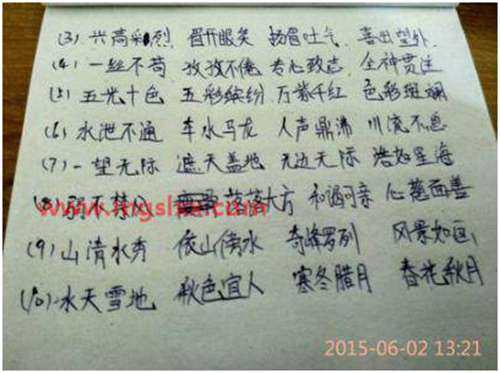 (3) 兴高彩烈 眉开眼笑 扬眉吐气 喜出望外
(4) 一丝不苟 孜孜不倦 专心致志 全神贯注
(5) 五光十色 五彩缤纷 万紫千红 色彩斑斓
(6) 水泄不通 车水马龙 人声鼎沸 川流不息
(7) 一望无际 遮天盖地 无边无际 浩如星海
(8) 落落大方 和谒可亲 心慈面善
(9) 山清水秀 依山傍水 奇峰罗列 风景如画
(10) 水天雪地 秋色宜人 寒冬腊月 春花秋月
2015-06-02 13:21